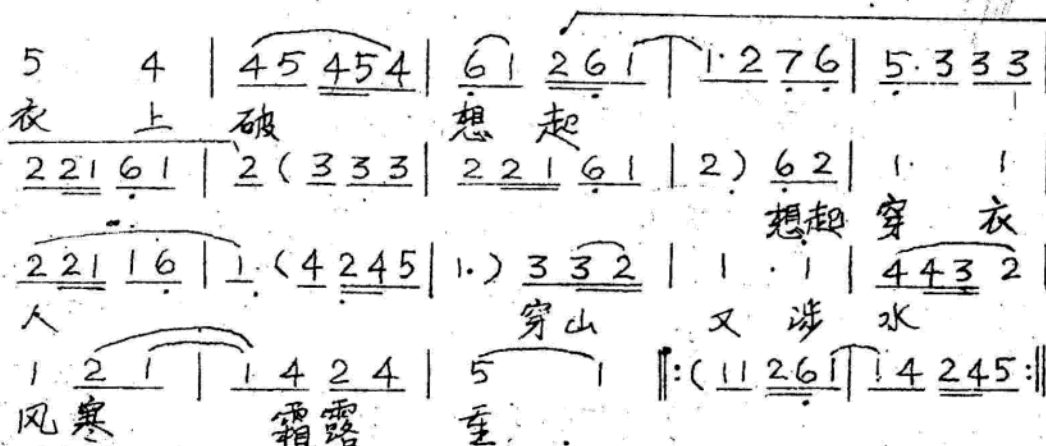 5 4 | 45 454 | 61 261 | 1·2 76 | 5·3 33
衣 上 破 想 起
221 61 | 2 (333 | 221 61 | 2) 62 | 1· 1
想起 穿 衣
221 16 | 1·(4 245 | 1·) 332 | 1 · 1 | 443 2
人 穿山 又 涉 水
1 2 1 | 1 4 2 4 | 5 1 ‖:(11 261 | 14 245:‖
风寒 霜露 重